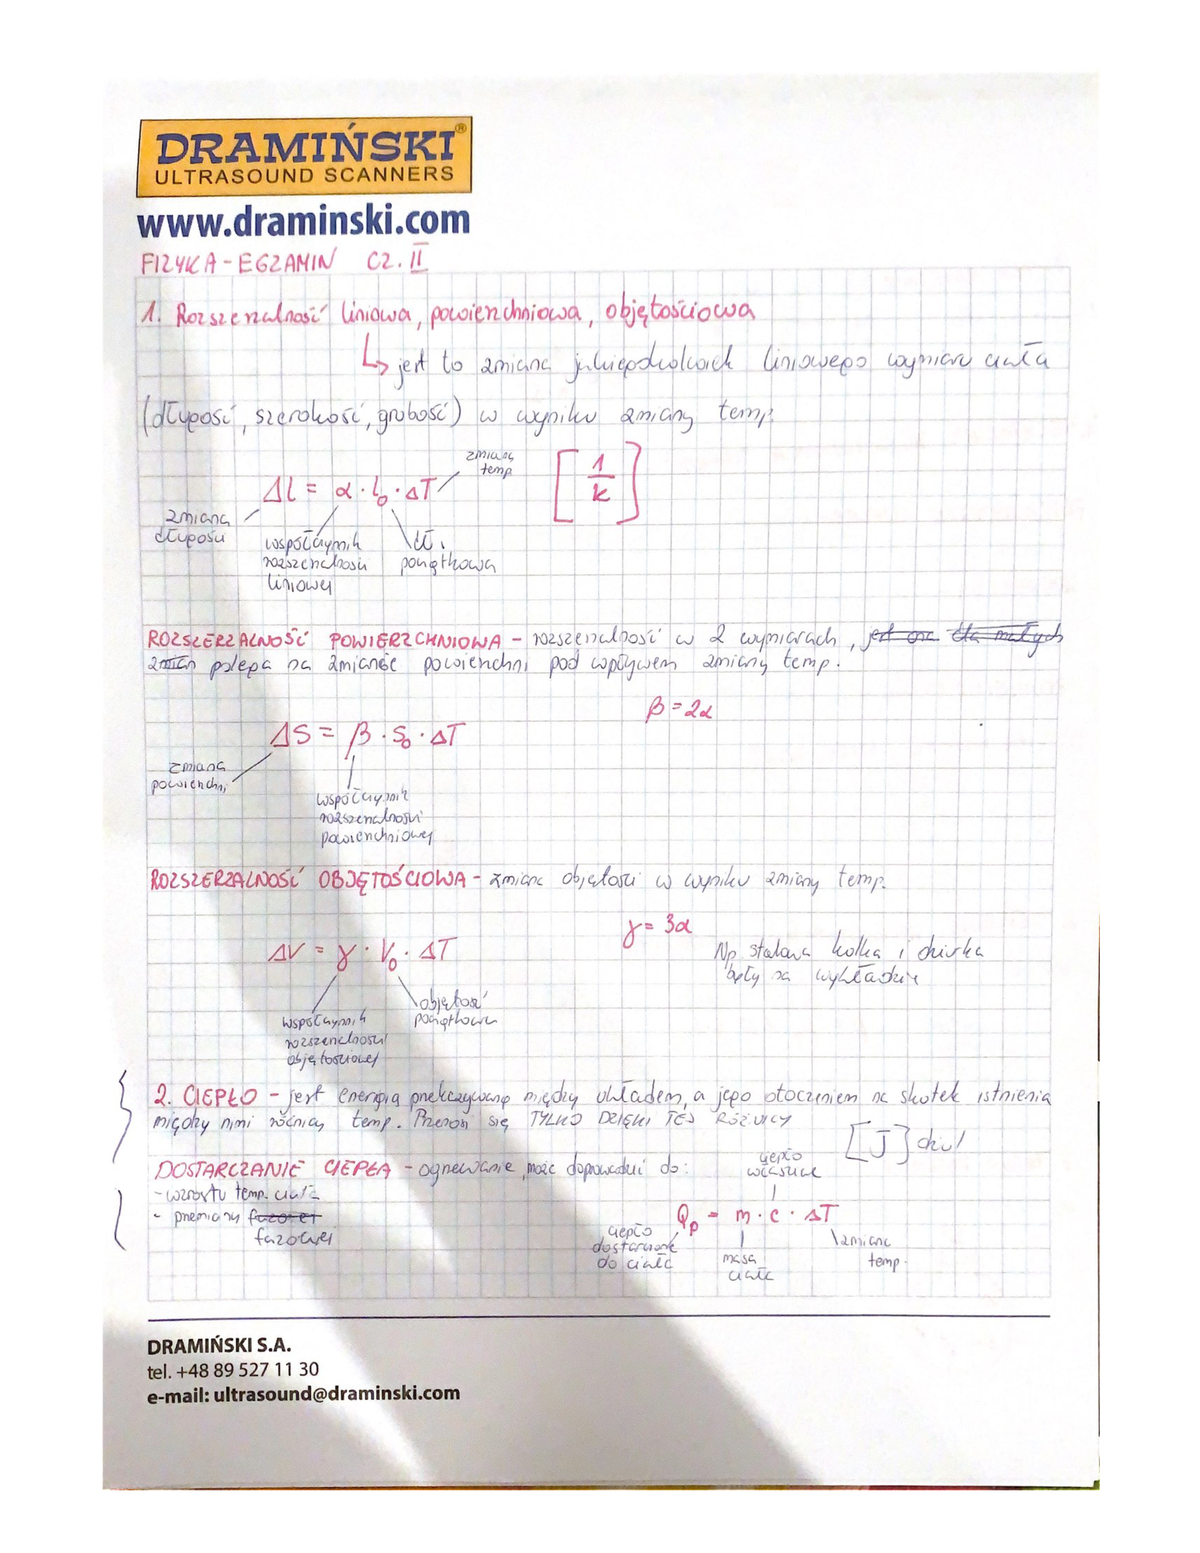 DRAMIŃSKI®
ULTRASOUND SCANNERS
www.draminski.com
FIZYKA - EGZAMIN CZ. II
1. Rozszerzalność liniowa, powierzchniowa, objętościowa
↳ jest to zmiana jakiegokolwiek liniowego wymiaru ciała
(długość, szerokość, grubość) w wyniku zmiany temp.
zmiana
temp
ΔL = α · L₀ · ΔT
[1/K]
zmiana
długości
współczynnik
rozszerzalności
liniowej
dł.
początkowa
ROZSZERZALNOŚĆ POWIERZCHNIOWA - rozszerzalność w 2 wymiarach, jest ona dla małych
zmian polega na zmianie powierzchni pod wpływem zmiany temp.
β = 2α
ΔS = β · S₀ · ΔT
zmiana
powierzchni
współczynnik
rozszerzalności
powierzchniowej
ROZSZERZALNOŚĆ OBJĘTOŚCIOWA - zmiana objętości w wyniku zmiany temp.
γ = 3α
ΔV = γ · V₀ · ΔT
Np stalowa kulka i dziurka
były na wykładzie
objętość
początkowa
współczynnik
rozszerzalności
objętościowej
2. CIEPŁO - jest energią przekazywaną między układem, a jego otoczeniem na skutek istnienia
między nimi różnicy temp. Przenosi się TYLKO DZIĘKI TEJ RÓŻNICY
[J]
DOSTARCZANIE CIEPŁA - ogrzewanie, może doprowadzić do:
- wzrostu temp. ciała
- przemiany
fazowej
ciepło
właściwe
Qp = m · c · ΔT
ciepło
dostarczone
do ciała
masa
ciała
zmiana
temp.
DRAMIŃSKI S.A.
tel. +48 89 527 11 30
e-mail: ultrasound@draminski.com